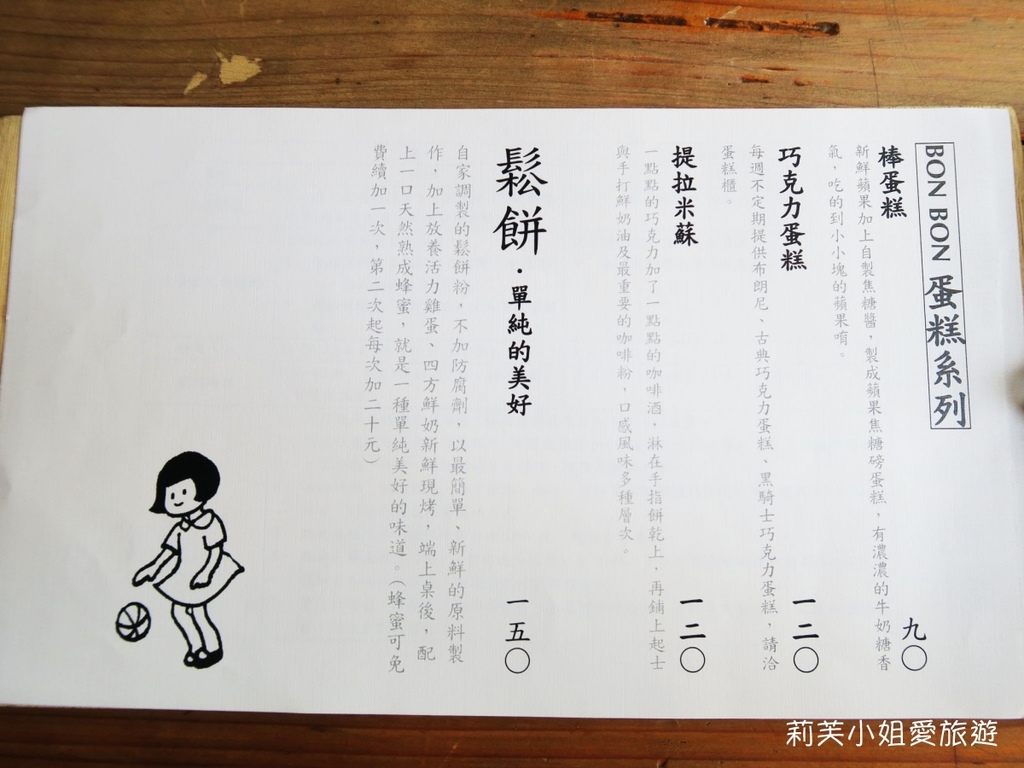 BON BON 蛋糕系列
棒蛋糕 九〇
新鮮蘋果加上自製焦糖醬，製成蘋果焦糖磅蛋糕，有濃濃的牛奶糖香
氣，吃的到小小塊的蘋果唷。
巧克力蛋糕 一二〇
每週不定期提供布朗尼、古典巧克力蛋糕、黑騎士巧克力蛋糕，請洽
蛋糕櫃。
提拉米蘇 一二〇
一點點的巧克力加了一點點的咖啡酒，淋在手指餅乾上，再鋪上起士
與手打鮮奶油及最重要的咖啡粉，口感風味多種層次。
鬆餅・單純的美好 一五〇
自家調製的鬆餅粉，不加防腐劑，以最簡單、新鮮的原料製
作，加上放養活力雞蛋、四方鮮奶新鮮現烤，端上桌後，配
上一口天然熟成蜂蜜，就是一種單純美好的味道。（蜂蜜可免
費續加一次，第二次起每次加二十元）
莉芙小姐愛旅遊